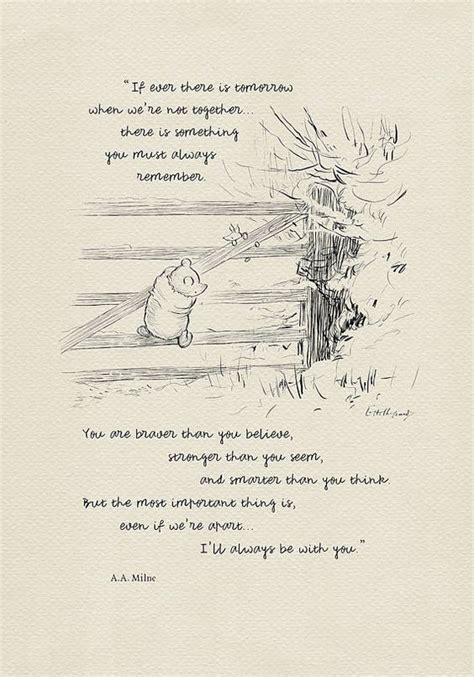 “If ever there is tomorrow
when we're not together...
there is something
you must always
remember.
You are braver than you believe,
stronger than you seem,
and smarter than you think.
But the most important thing is,
even if we're apart...
I'll always be with you.”
A.A. Milne